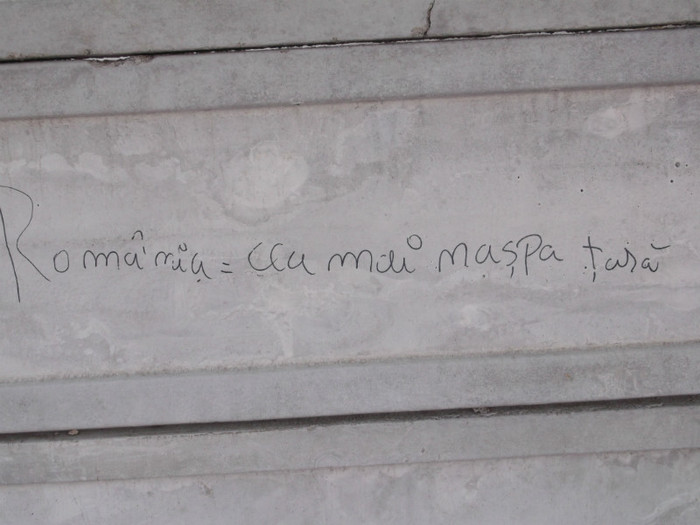 România = cea mai nașpa țară